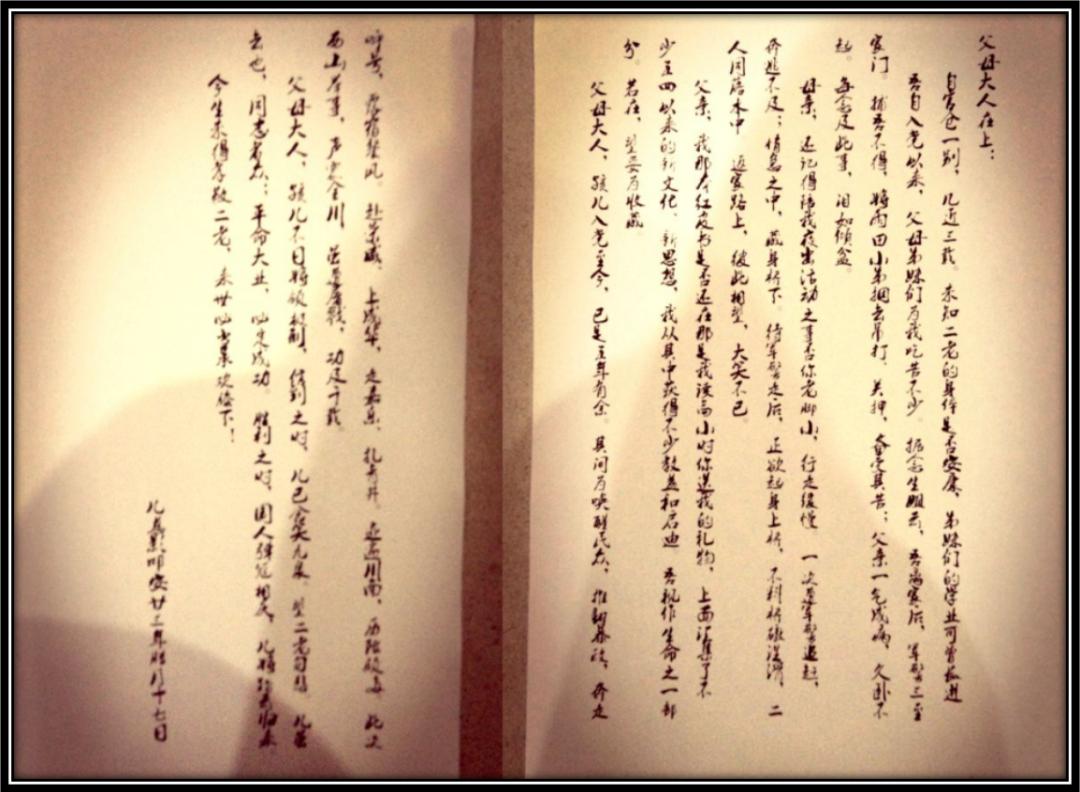 父母大人在上：
自官仓一别，儿近三载。未知二老的身体是否安康，弟妹们的学业可曾长进
吾自入党以来，父母弟妹们为我吃苦不少。据念生姐云，吾离家后，军警三至
家门，捕吾不得，将两田小弟捆去吊打，关押，备受其苦；父亲一气成病，久卧不
起。每念及此事，泪如倾盆。
母亲，还记得陪我夜出活动之事否你老脚小，行走缓慢 一次遭军警追赶，
奔逃不及；情急之中，藏身桥下。待军警走后，正欲起身上桥，不料桥礅湿滑，二
人同落水中 返家路上，彼此相望，大笑不已。
父亲，我那本红皮书是否还在那是我读高小时你送我的礼物，上面汇集了不
少五四以来的新文化、新思想，我从其中获得不少教益和启迪 吾视作生命之一部
分。若在，望妥为收藏。
父母大人，孩儿入党至今，已是五年有余。其间为唤醒民众，推翻暴政，奔走
呼号，夜宿风。赴京城，上成华，走嘉乐，扎井，近川南，历险，此次
西山举事，声震全川，虽屡战，功及千载。
父母大人，孩儿不日将被枪刑，信到之时，儿已含笑九泉。望二老勿悲，儿虽
去也，同志者众；革命大业，必定成功。胜利之时，国人弹冠相庆，儿将踏归来
今生未得孝敬二老，来世必当承欢膝下！
儿叩安廿三年腊月十七日